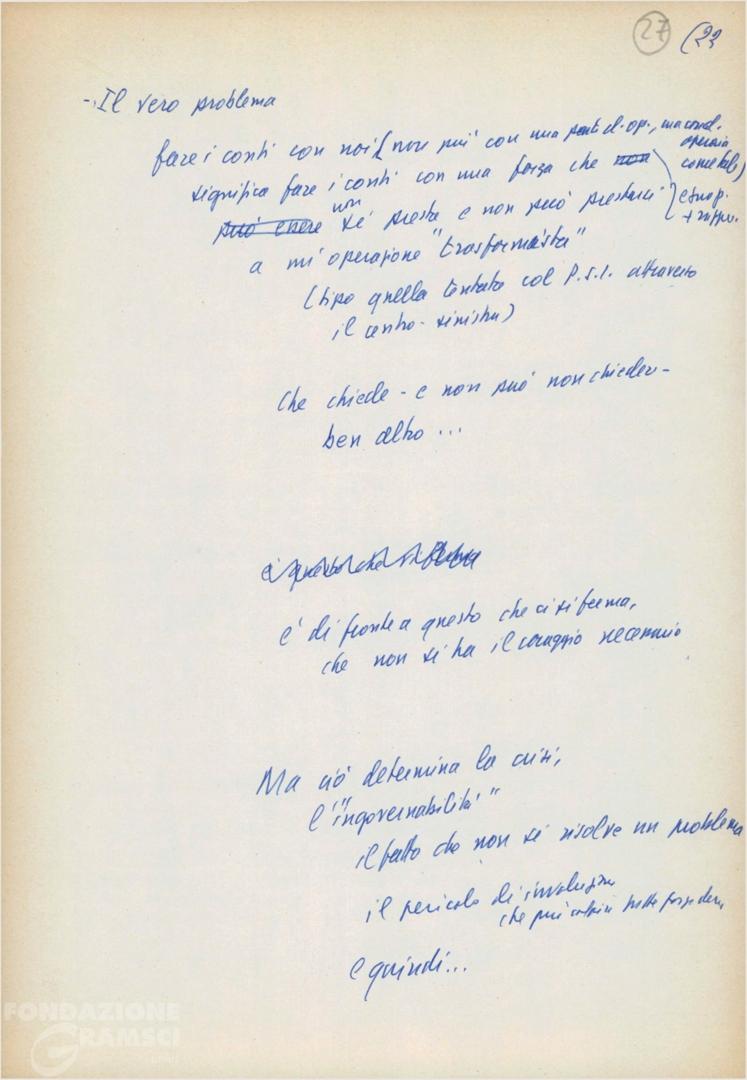 27 (22
- Il vero problema
fare i conti con noi (non più con una parte cl. op., ma con cl. operaia come tale)
significa fare i conti con una forza che non
può essere non si presta e non può prestarsi
a un'operazione "trasformista"
(tipo quella tentata col P.S.I. attraverso
il centro-sinistra)
Che chiede - e non può non chiedere -
ben altro ...
è questo che si
è di fronte a questo che ci si ferma,
che non si ha il coraggio necessario
Ma ciò determina la crisi,
l'"ingovernabilità"
il fatto che non si risolve un problema
il pericolo di involuzioni
che può colpire tutte forze dem.
e quindi...
FONDAZIONE
GRAMSCI